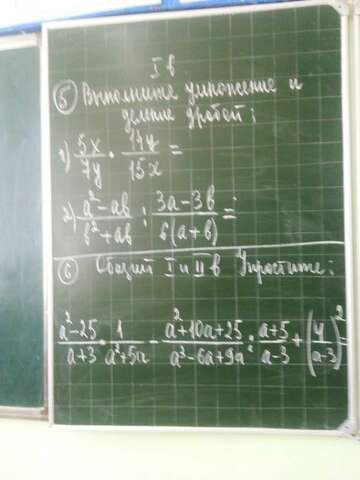 I в.
⑤ Выполните умножение и
деление дробей:
1) 5x/7y · 14y/15x =
2) (a² - aв)/(в² + aв) : (3a - 3в)/(6(a + в)) =
⑥ Общий I и II в Упростите:
(a² - 25)/(a + 3) · 1/(a² + 5a) - (a² + 10a + 25)/(a³ - 6a + 9a) : (a + 5)/(a - 3) + (y/(a - 3))² =